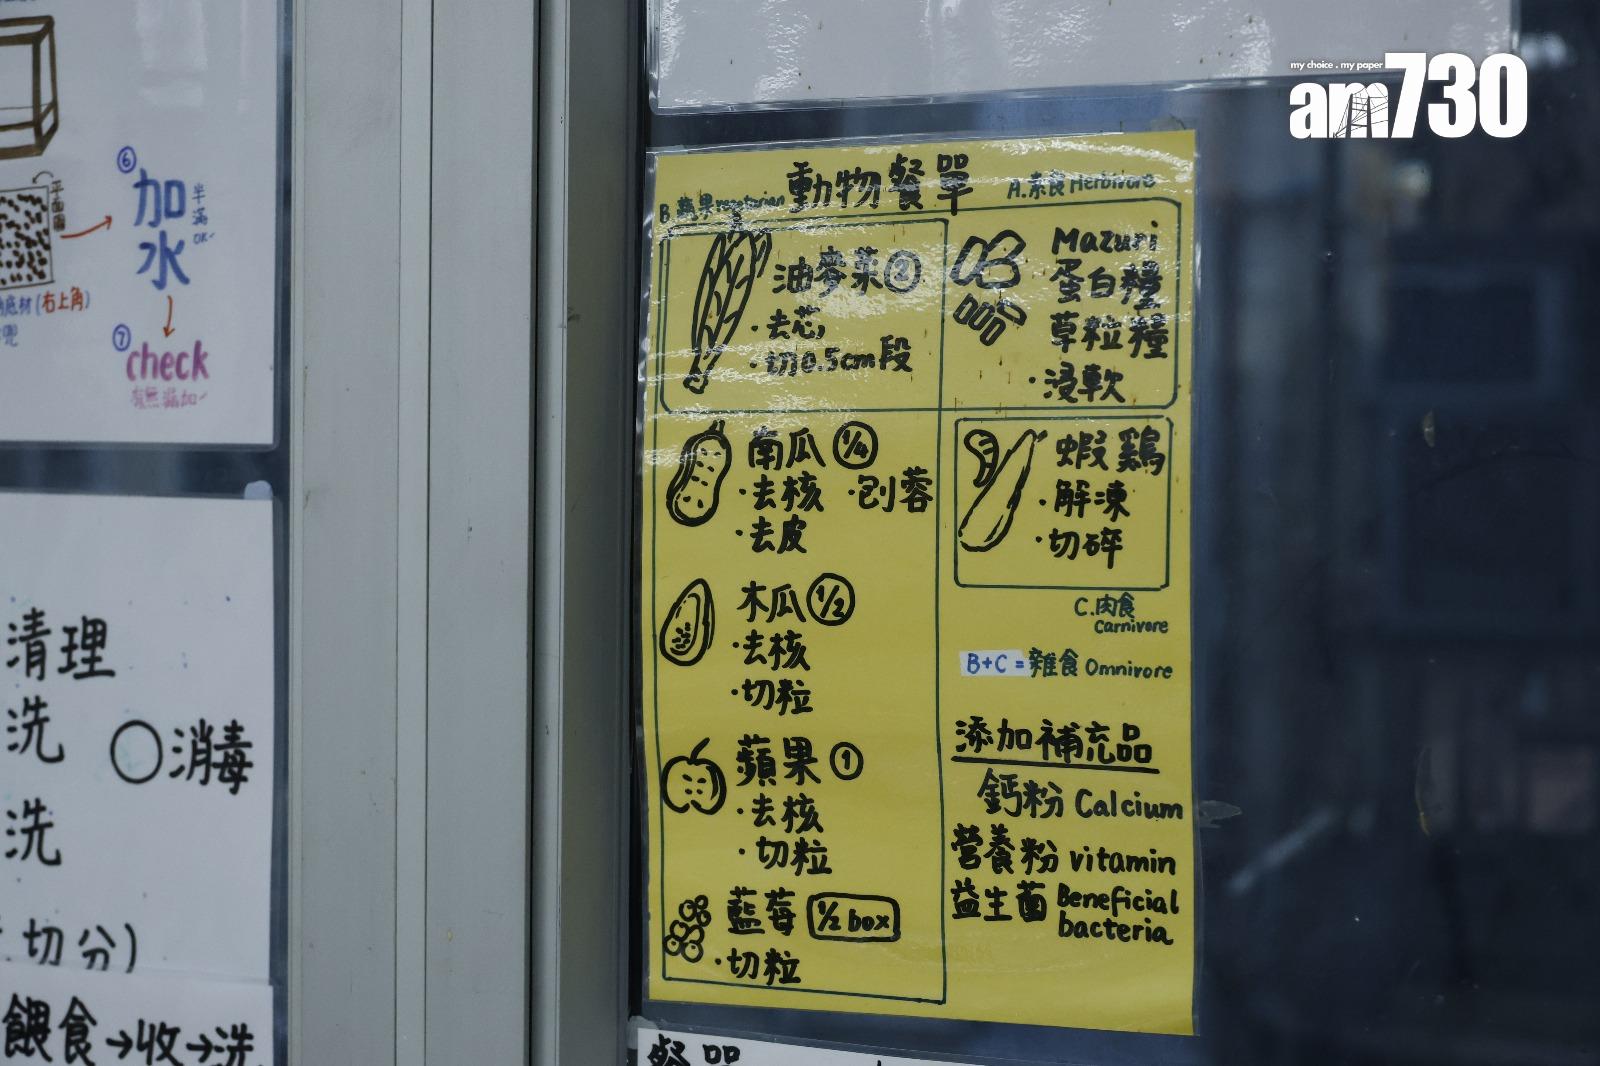 my choice . my paper
am730
⑥
加水
半滿
OK✓
平面圖
底材(右上角)
⑦
check
有無漏加✓
清理
洗
○消毒
洗
切分)
餵食→收→洗
動物餐單
B.蔬果vegetarian
A.素食Herbivore
油麥菜②
·去芯,
·切0.5cm段
Mazuri
蛋白糧
草粒糧
·浸軟
南瓜 1/4
·去核 ·刨蓉
·去皮
蝦 鷄
·解凍
·切碎
C.肉食
Carnivore
木瓜 1/2
·去核
·切粒
B+C = 雜食 Omnivore
蘋果 ①
·去核
·切粒
藍莓 1/2 box
·切粒
添加補充品
鈣粉 Calcium
營養粉 vitamin
益生菌 Beneficial
bacteria
餐單